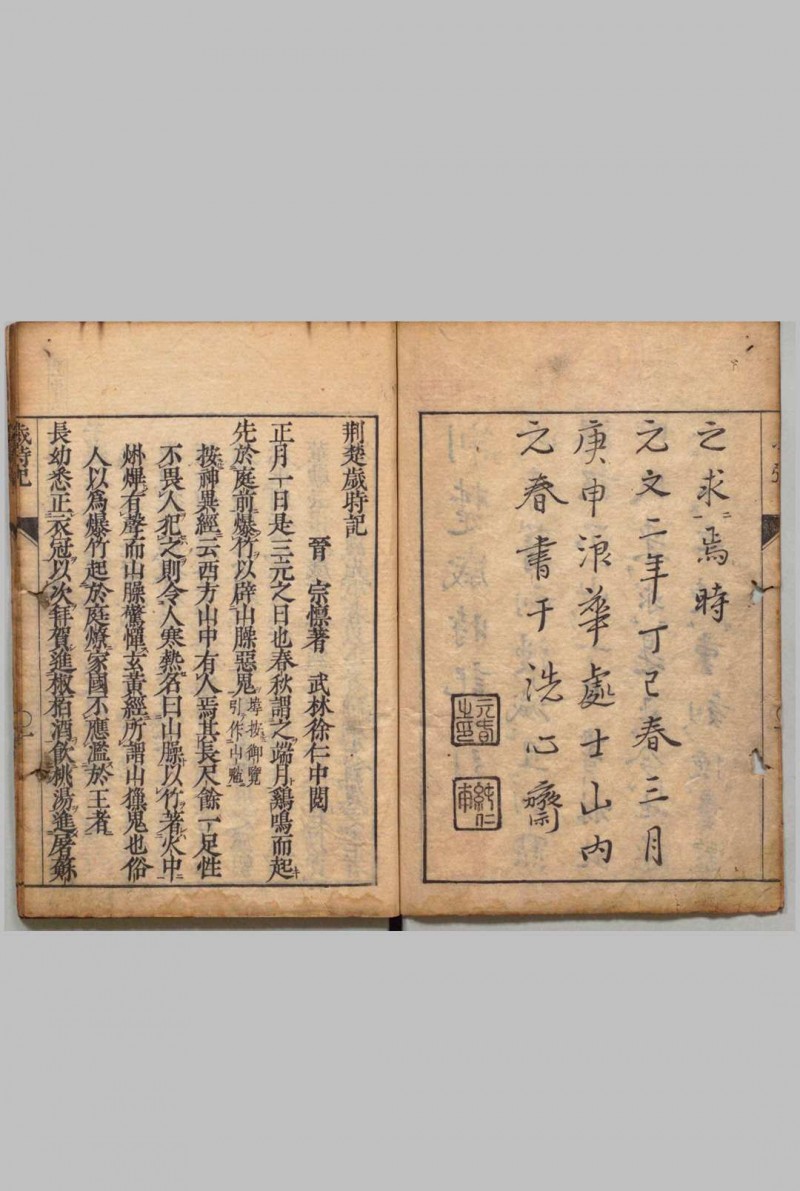 之求焉時
元文二年丁巳春三月
庚申浪華處士山內
元春書于洗心齋
荆楚歲時記
晉 宗懍著 武林徐仁中閱
正月一日是三元之日也春秋謂之端月鷄鳴而起
先於庭前爆竹以辟山臊惡鬼
按御覽
引作山魈
按神異經云西方山中有人焉其長尺餘一足性
不畏人犯之則令人寒熱名曰山臊以竹著火中
烞熚有聲而山臊驚憚玄黃經所謂山𤢖鬼也俗
人以爲爆竹起於庭燎家國不應濫於王者
長幼悉正衣冠以次拜賀進椒柏酒飲桃湯進屠蘇
歲時記